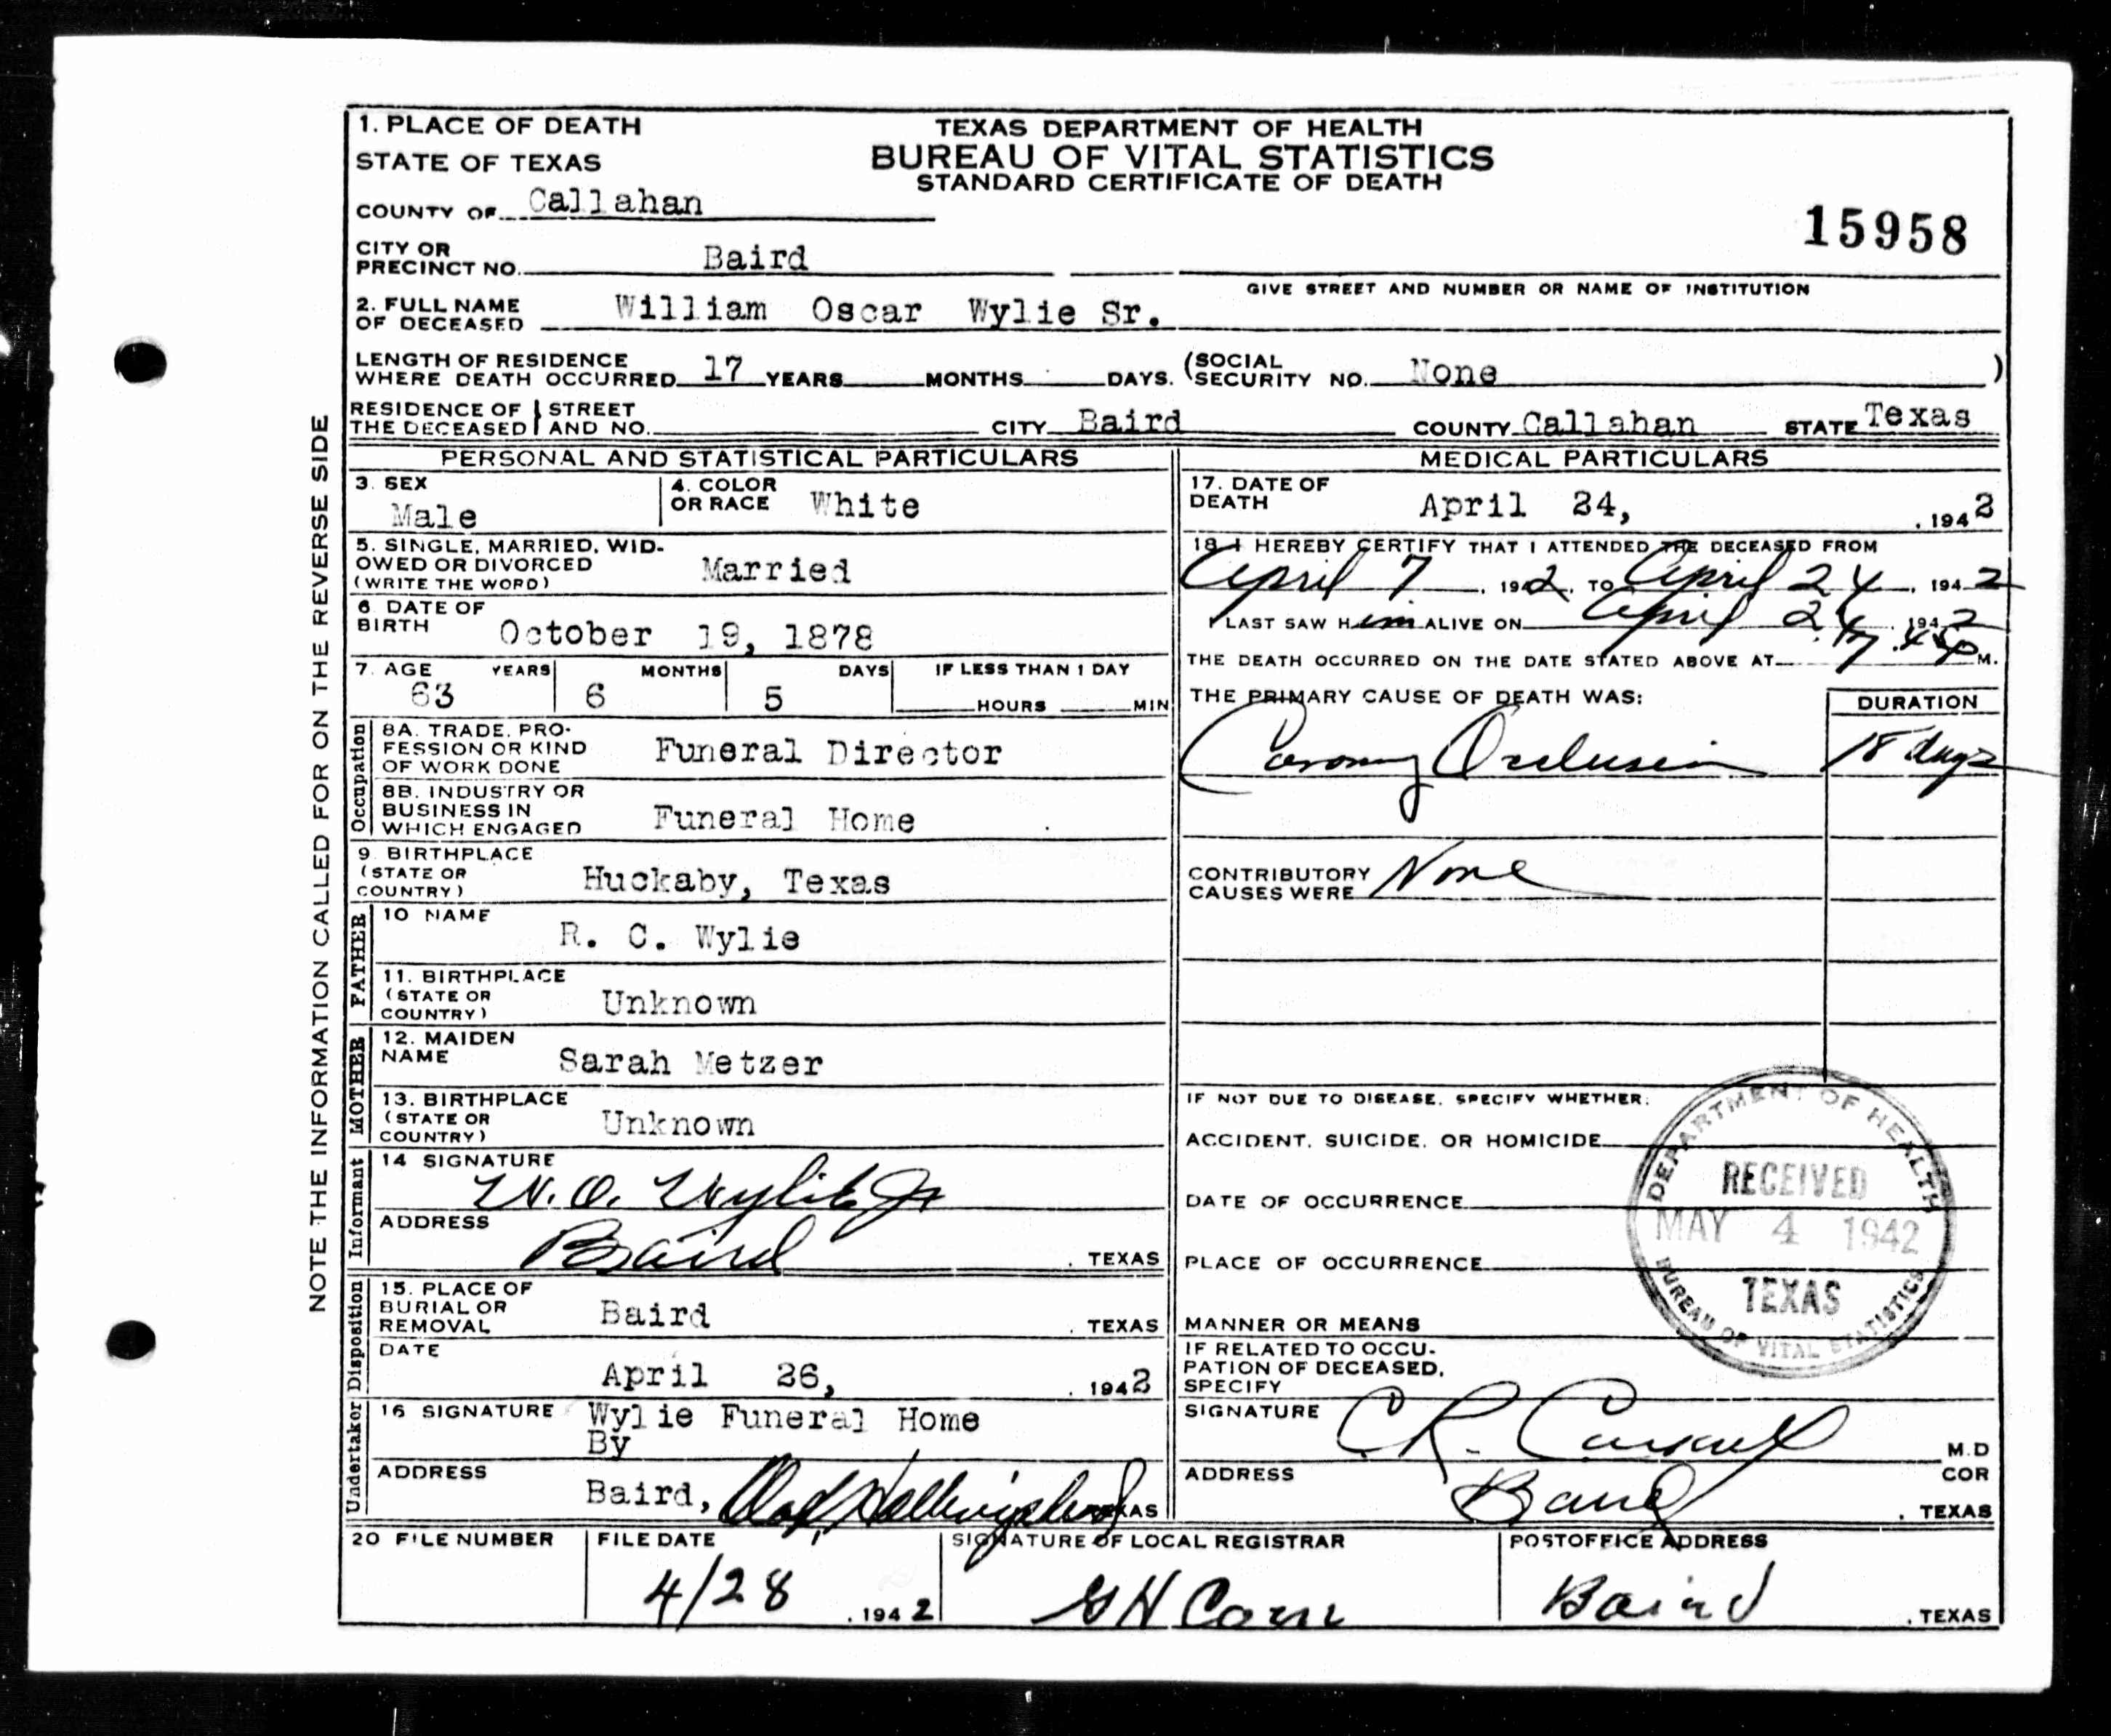 1. PLACE OF DEATH
STATE OF TEXAS
COUNTY OF Callahan
TEXAS DEPARTMENT OF HEALTH
BUREAU OF VITAL STATISTICS
STANDARD CERTIFICATE OF DEATH
15958
CITY OR
PRECINCT NO. Baird
GIVE STREET AND NUMBER OR NAME OF INSTITUTION
2. FULL NAME
OF DECEASED William Oscar Wylie Sr.
LENGTH OF RESIDENCE
WHERE DEATH OCCURRED 17 YEARS MONTHS DAYS. (SOCIAL
SECURITY NO. None )
RESIDENCE OF THE DECEASED STREET AND NO. CITY Baird COUNTY Callahan STATE Texas
NOTE THE INFORMATION CALLED FOR ON THE REVERSE SIDE
PERSONAL AND STATISTICAL PARTICULARS
3. SEX
Male
4. COLOR
OR RACE White
5. SINGLE, MARRIED, WID-
OWED OR DIVORCED
(WRITE THE WORD) Married
6 DATE OF
BIRTH October 19, 1878
7. AGE YEARS MONTHS DAYS IF LESS THAN 1 DAY
63 6 5 HOURS MIN
Occupation
8A. TRADE, PRO-
FESSION OR KIND
OF WORK DONE Funeral Director
8B. INDUSTRY OR
BUSINESS IN
WHICH ENGAGED Funeral Home
9. BIRTHPLACE
(STATE OR
COUNTRY) Huckaby, Texas
FATHER
10 NAME
R. C. Wylie
11. BIRTHPLACE
(STATE OR
COUNTRY) Unknown
MOTHER
12. MAIDEN
NAME Sarah Metzer
13. BIRTHPLACE
(STATE OR
COUNTRY) Unknown
Informant
14 SIGNATURE
W. O. Wylie Jr
ADDRESS
Baird , TEXAS
Disposition
15. PLACE OF
BURIAL OR
REMOVAL Baird , TEXAS
DATE
April 26, , 1942
Undertaker
16 SIGNATURE Wylie Funeral Home
By
ADDRESS
Baird, TEXAS
MEDICAL PARTICULARS
17. DATE OF
DEATH April 24, , 1942
18 I HEREBY CERTIFY THAT I ATTENDED THE DECEASED FROM
April 7 , 1942, TO April 24 , 1942
I LAST SAW Him ALIVE ON April 24 , 1942
THE DEATH OCCURRED ON THE DATE STATED ABOVE AT M.
THE PRIMARY CAUSE OF DEATH WAS: DURATION
Coronary Occlusion 18 days
CONTRIBUTORY
CAUSES WERE None
IF NOT DUE TO DISEASE, SPECIFY WHETHER:
ACCIDENT, SUICIDE, OR HOMICIDE
DATE OF OCCURRENCE
PLACE OF OCCURRENCE
MANNER OR MEANS
IF RELATED TO OCCU-
PATION OF DECEASED,
SPECIFY
DEPARTMENT OF HEALTH
RECEIVED
MAY 4 1942
TEXAS
BUREAU OF VITAL STATISTICS
SIGNATURE C. R. M.D
COR
ADDRESS
Baird , TEXAS
20 FILE NUMBER
FILE DATE
4/28 , 1942
SIGNATURE OF LOCAL REGISTRAR
G H Corn
POSTOFFICE ADDRESS
Baird , TEXAS